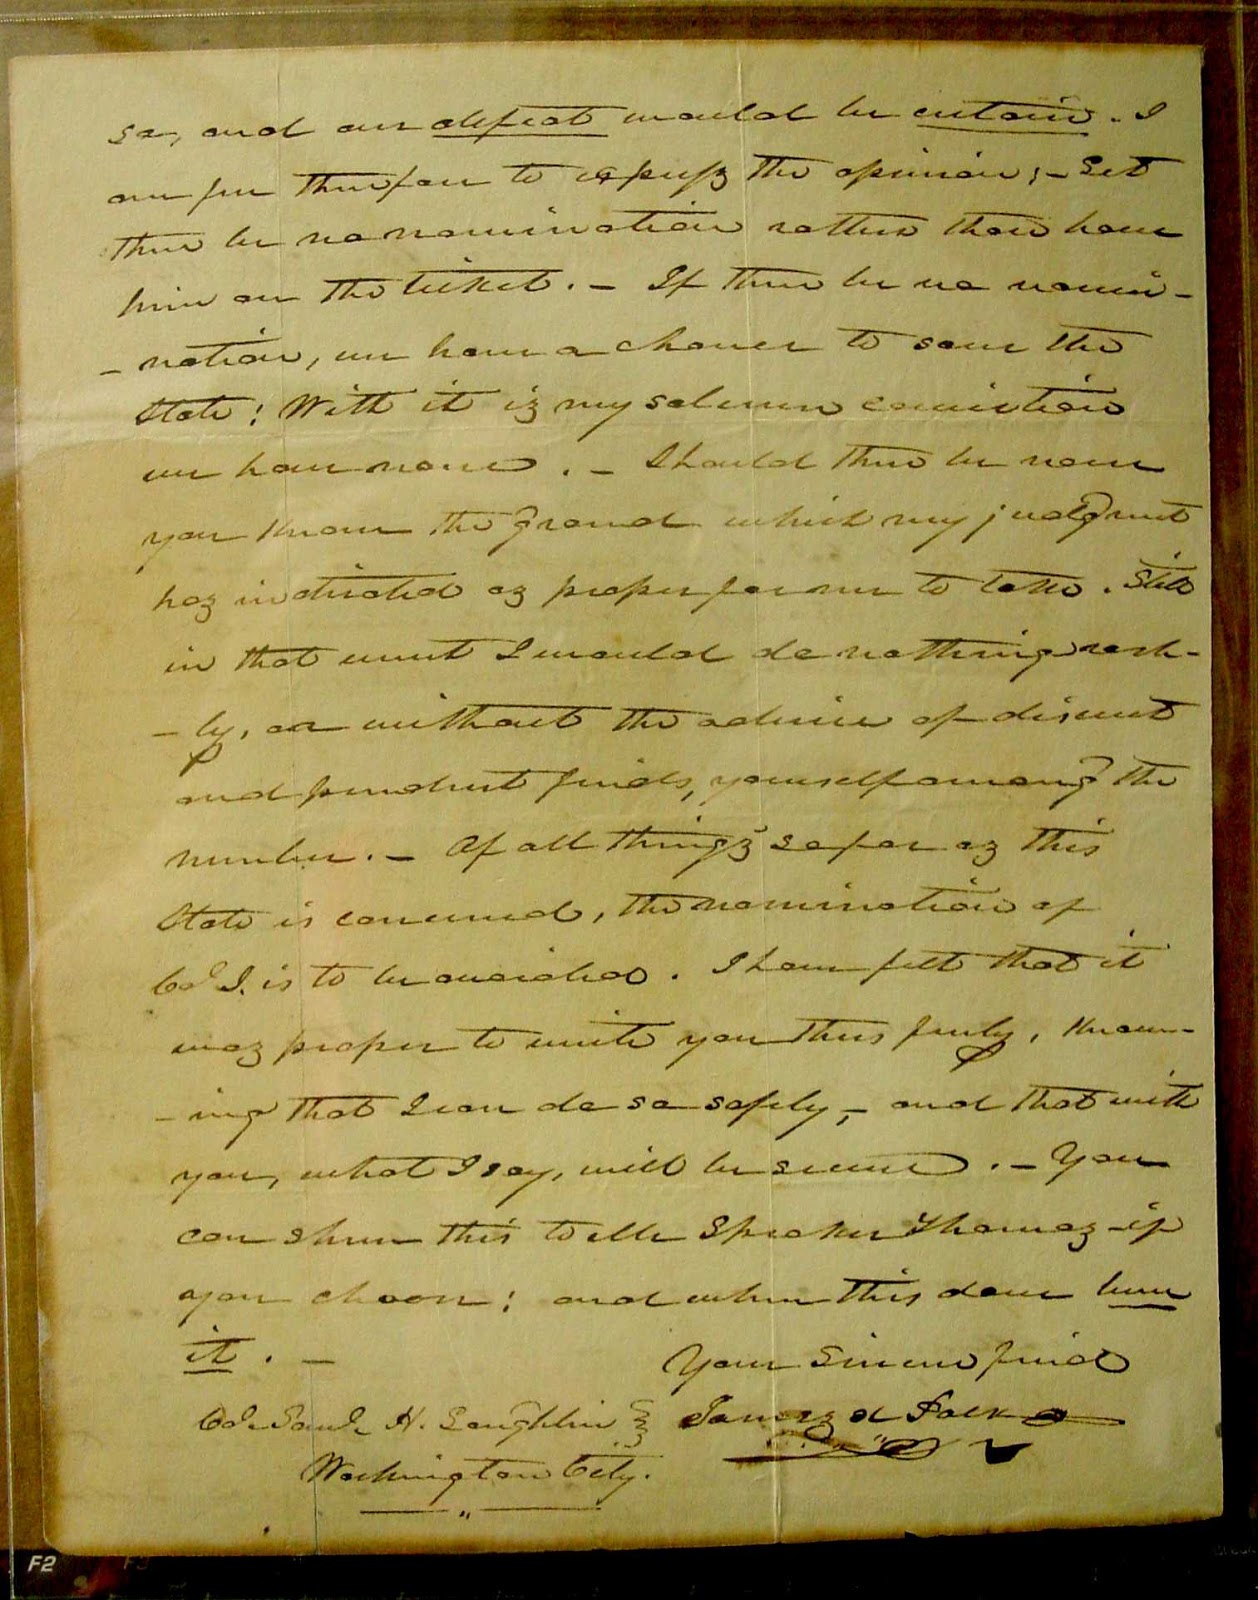 so, and our defeat would be certain. I
am free therefore to express the opinion; - Let
there be no nomination rather than have
him on the ticket. - If there be no nomi-
- nation, we have a chance to save the
State: With it is my solemn conviction
we have none. - Should there be none
you know the ground which my judgment
has indicated as proper for me to take. Still
in that event I would do nothing rash-
- ly, or without the advice of discreet
and prudent friends, yourself among the
number. - Of all things so far as this
State is concerned, the nomination of
Col J. is to be avoided. I have felt that it
was proper to write you thus freely, know-
- ing that I can do so safely, - and that with
you, what I say, will be secure. - You
can shew this to Mr Speaker Thomas if
you choose: and when this done burn
it. -
Your sincere friend
Col. Saml. H. Laughlin James K Polk
Washington City.
F2